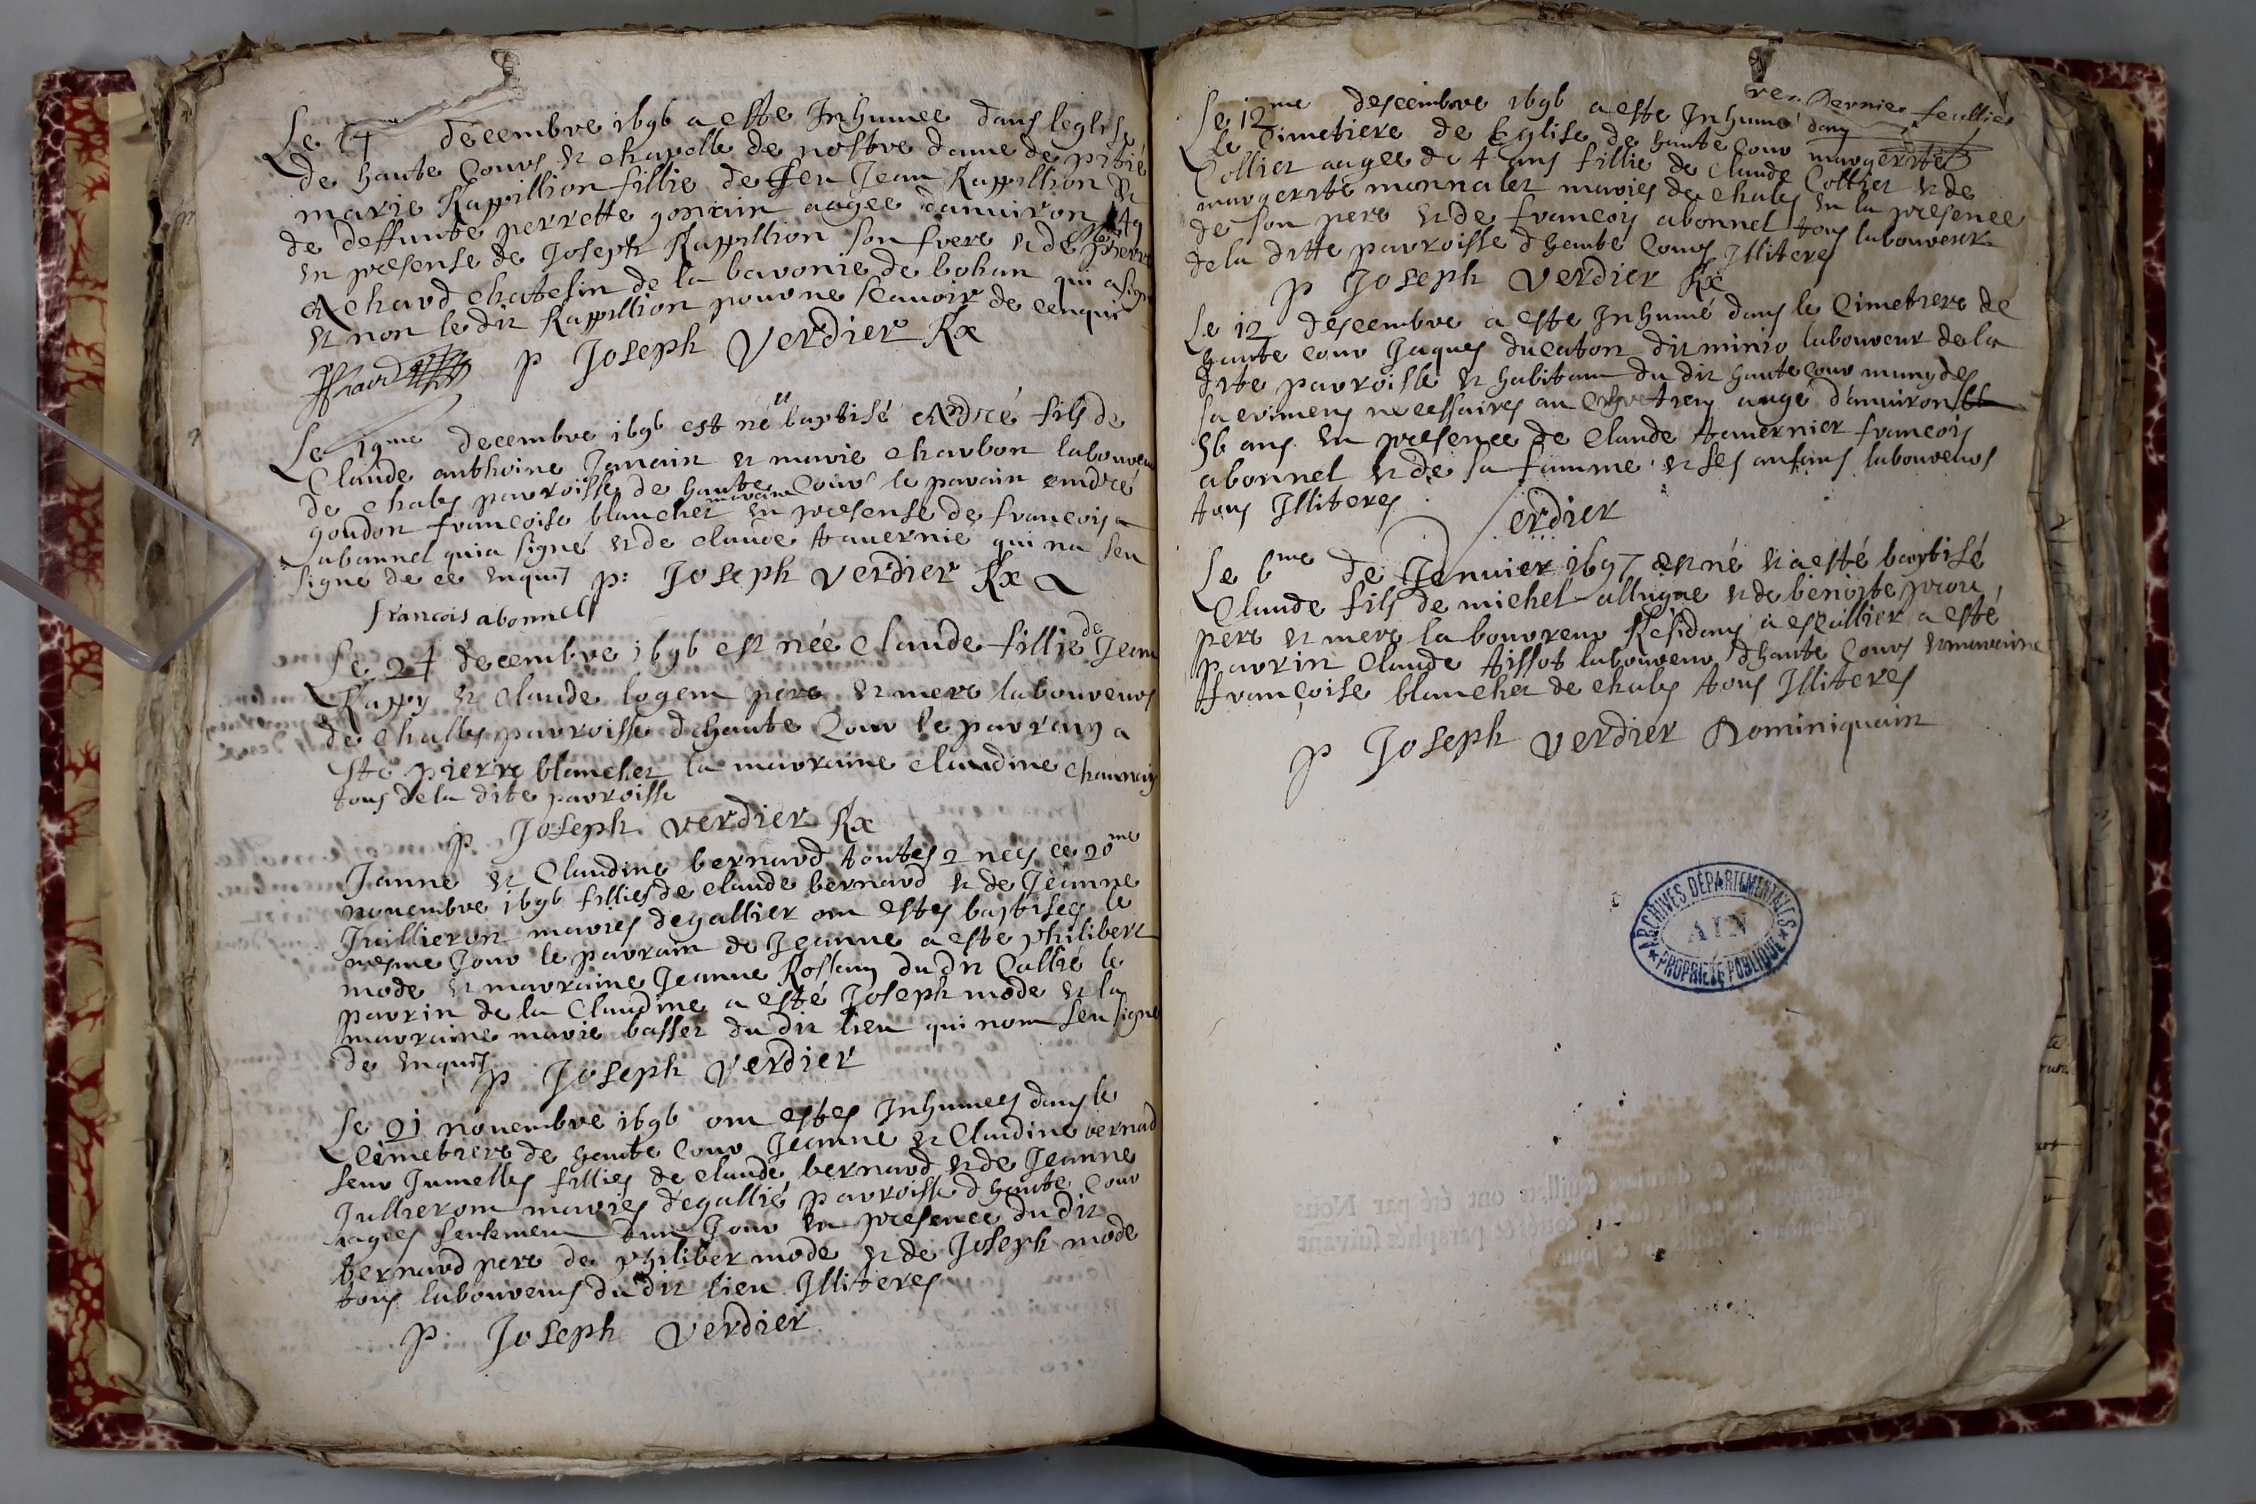 Le 14 decembre 1696 a este Inhumee dans leglise
de haute Cours et chapelle de nostre dame de pitié
marie Rappillion fillie de feu Jean Rappillion et
de deffunte perrette gonrin aagee danviron 49
en presense de Joseph Rappillion son frere et de pierre
Achard chatelin de la baronie de bohan qui a signe
et non le dit Rappillion pour ne scauoir de cenquis
p Joseph Verdier Rx
Le 19me decembre 1696 est né et baptisé André fils de
Claude anthoine Jamain et marie charbon laboureur
de chales parroisse de haute Cour le parain andré
goudon maraine francoise blanchet en presense de francois
abonnel qui a signé et de claude tauernié qui na seu
signe de ce enquis p: Joseph Verdier Rx
francois abonnel
Le 24 decembre 1696 est née claude fillie de Jean
Rappy et claude logem pere et mere laboureurs
de challes parroisse dhaute Cour le parrain a
este pierre blanchet la marraine claudine
tous de la dite parroisse
p Joseph verdier Rx
Janne et Claudine bernard toutes 2 nees ce 20me
nouembre 1696 fillies de claude bernard et de Jeanne
Juillieron maries degallier ont estes baptisees le
mesme Jour le parrain de Jeanne a este philibert
mode et marraine Jeanne Rossam du dit Callié le
parrin de la Claudine a esté Joseph mode et la
marraine marie basset du dit lieu qui nont seu signe
de enquis p Joseph Verdier
Le 21 nouembre 1696 ont estes Inhumees dans le
Cimetiere de haute Cour Jeanne et Claudine bernad
seur Jumelles fillies de claude bernard et de Jeanne
Jullieront maries degallié parroisse dhaute Cour
aagees seulement dun Jour en presence du dit
bernard pere de philiber mode et de Joseph mode
tous laboureurs du dit lieu Illiteres
p Joseph Verdier
dernier feullier
Le 12me descembre 1696 a este Inhumé dans
le Cimetiere de Eglise de haute Cour margerite
Collier aagee de 4 ans fillie de claude Collier et de
margerite monnalet maries de chales en la presence
de son pere et de francois abonnel tous laboureur
de la ditte parroisse dhaute Cours Illiteres
p Joseph Verdier Rx
Le 12 descembre a este Inhumé dans le Cimetiere de
haute cour Jaques ducaton dit minio laboureur de la
dite parroisse et habitant du dit haute cour muny des
sacrimens necessaires au chretien aagé d'anuiron
56 ans en presence de Claude tauernier francois
abonnel et de sa famme et ses anfans laboureurs
tous Illiteres
Verdier
Le 6me de Januier 1697 est né et a esté baptisé
Claude fils de michel allugne et de benoite
pere et mere laboureur Residans a escallier a esté
parrin Claude tissot laboureur dhaute Cours et maraine
francoise blanchet de chales tous Illiteres
p Joseph verdier Dominiquain
ARCHIVES DÉPARTEMENTALES
AIN
★ PROPRIÉTÉ PUBLIQUE ★